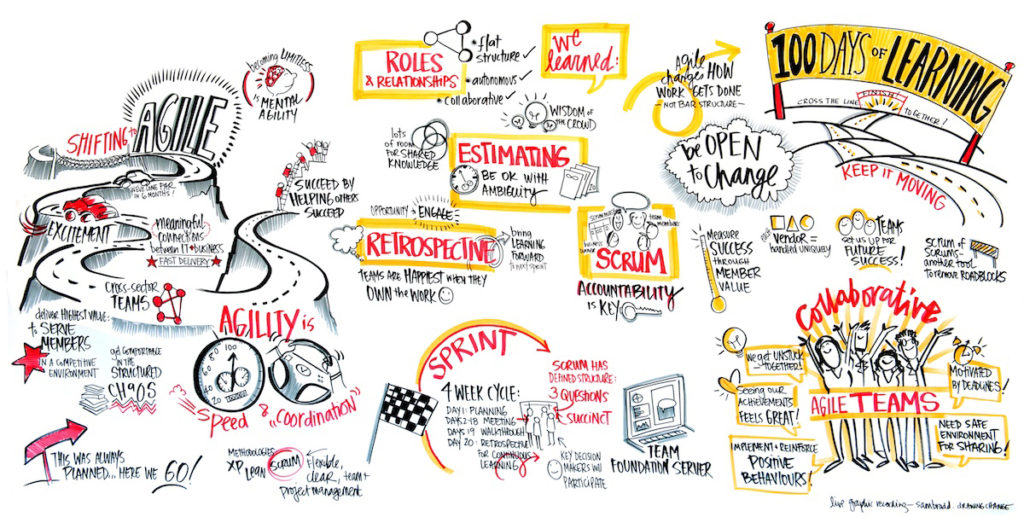 becoming LIMITLESS
is MENTAL
AGILITY
SHIFTING to
AGILE
WE'VE COME FAR
IN 6 MONTHS!
EXCITEMENT
meaningful
connections
between IT & business
FAST DELIVERY
SUCCEED BY
HELPING others
SUCCEED
cross-sector
TEAMS
deliver HIGHEST VALUE
to SERVE
MEMBERS
IN A COMPETITIVE
ENVIRONMENT
get COMFORTABLE
in the
STRUCTURED
CHAOS
AGILITY is
80 100
60
20
Speed & "Coordination"
THIS WAS ALWAYS
PLANNED... HERE WE GO!
METHODOLOGIES:
XP Lean SCRUM
flexible,
clear, team +
project management
ROLES
& RELATIONSHIPS
• flat
structure ✓
• autonomous ✓
• collaborative ✓
We
learned:
lots
of room
for SHARED
KNOWLEDGE
WISDOM OF
THE CROWD
ESTIMATING
BE OK WITH
AMBIGUITY
20
OPPORTUNITY to ENGAGE
RETROSPECTIVE
bring
LEARNING
FORWARD
to next sprint
TEAMS ARE HAPPIEST WHEN THEY
OWN THE WORK
team
members
SCRUM
ACCOUNTABILITY
is KEY
SPRINT
4 WEEK CYCLE:
DAY 1: PLANNING
DAYS 2-18 MEETING
DAYS 19 WALKTHROUGH
DAY 20: RETROSPECTIVE
FOR CONTINUOUS
LEARNING
SCRUM HAS
DEFINED STRUCTURE:
3 QUESTIONS
SUCCINCT
KEY DECISION
MAKERS
PARTICIPATE
TEAM
FOUNDATION SERVER
Agile
changes HOW
WORK GETS DONE
— NOT BAR STRUCTURE —
be OPEN
to Change
100 DAYS of LEARNING
CROSS THE LINE
FINISH
TOGETHER!
KEEP IT MOVING
MEASURE
SUCCESS
THROUGH
MEMBER
VALUE
each
VENDOR =
handled uniquely
TEAMS
set us up for
FUTURE
SUCCESS!
SCRUM of
SCRUMS -
another tool
to remove ROADBLOCKS
Collaborative
AGILE TEAMS
We get UNSTUCK
TOGETHER!
Seeing our
ACHIEVEMENTS
FEELS GREAT!
IMPLEMENT + REINFORCE
POSITIVE
BEHAVIOURS!
MOTIVATED
BY DEADLINES!
NEED SAFE
ENVIRONMENT
FOR SHARING!
live graphic recording — sam bradd. DRAWING CHANGE